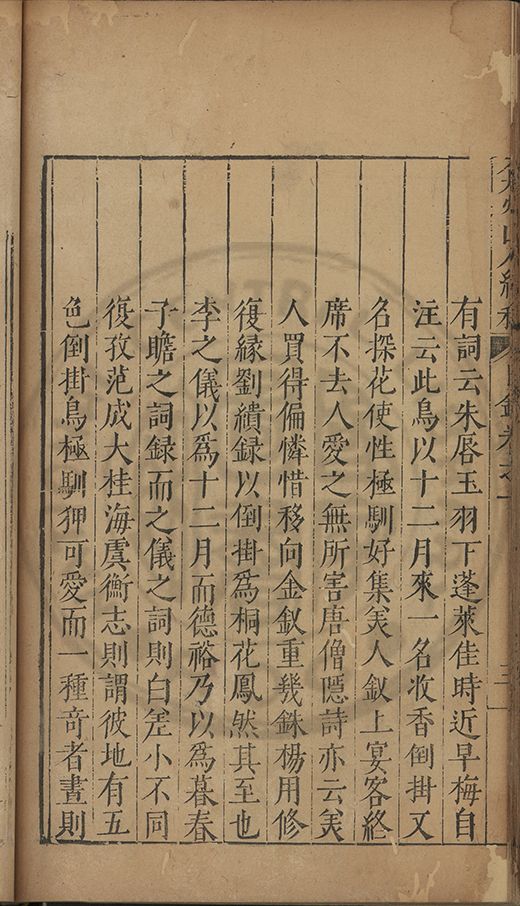 有詞云朱唇玉羽下蓬萊佳時近早梅自
注云此鳥以十二月來一名收香倒掛又
名探花使性極馴好集美人釵上宴客終
席不去人愛之無所害唐僧隱詩亦云美
人買得偏憐惜移向金釵重幾銖楊用修
復緣劉績錄以倒掛為桐花鳳然其至也
李之儀以為十二月而德裕乃以為暮春
子瞻之詞録而之儀之詞則自差小不同
復攷范成大桂海虞衡志則謂彼地有五
色倒掛鳥極馴狎可愛而一種奇者晝則